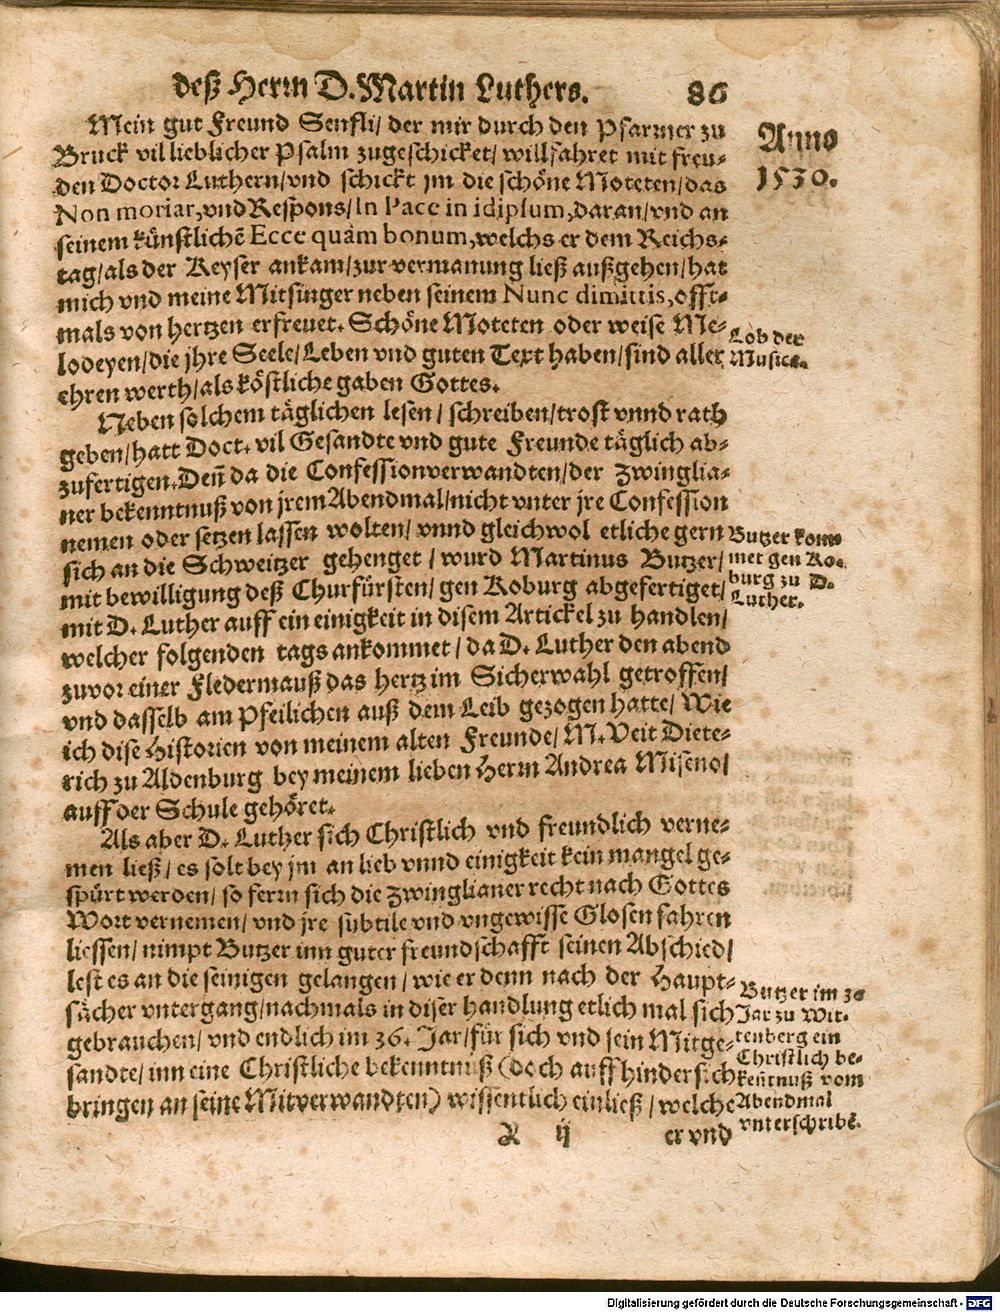 deß Herrn D. Martin Luthers. 86
Anno
1530.
Mein gut Freund Senfli/ der mir durch den Pfarrner zu
Bruck vil lieblicher Psalm zugeschicket/ willfahret mit freu-
den Doctor Luthern/ vnd schickt jm die schöne Moteten/ das
Non moriar, vnd Respons/ In Pace in idipsum, daran/ vnd an
seinem künstlichẽ Ecce quàm bonum, welchs er dem Reichs-
tag/ als der Keyser ankam/ zur vermanung ließ außgehen/ hat
mich vnd meine Mitsinger neben seinem Nunc dimittis, offt-
mals von hertzen erfreuet. Schöne Moteten oder weise Me-
lodeyen/ die jhre Seele/ Leben vnd guten Text haben/ sind aller
ehren werth/ als köstliche gaben Gottes.
Lob der
Musica.
Neben solchem täglichen lesen/ schreiben/ trost vnnd rath
geben/ hatt Doct. vil Gesandte vnd gute Freunde täglich ab-
zufertigen. Deñ da die Confessionverwandten/ der Zwinglia-
ner bekenntnuß von jrem Abendmal/ nicht vnter jre Confession
nemen oder setzen lassen wolten/ vnnd gleichwol etliche gern
sich an die Schweitzer gehenget/ wurd Martinus Butzer/
mit bewilligung deß Churfürsten/ gen Koburg abgefertiget/
mit D. Luther auff ein einigkeit in disem Artickel zu handlen/
welcher folgenden tags ankommet/ da D. Luther den abend
zuvor einer Fledermauß das hertz im Sicherwahl getroffen/
vnd dasselb am Pfeilichen auß dem Leib gezogen hatte/ Wie
ich dise Historien von meinem alten Freunde/ M. Veit Diete-
rich zu Aldenburg bey meinem lieben Herrn Andrea Miseno/
auff der Schule gehöret.
Butzer kom-
met gen Ko-
burg zu D.
Luther.
Als aber D. Luther sich Christlich vnd freundlich verne-
men ließ/ es solt bey jm an lieb vnnd einigkeit kein mangel ge-
spürt werden/ so fern sich die Zwinglianer recht nach Gottes
Wort vernemen/ vnd jre subtile vnd vngewisse Glosen fahren
liessen/ nimpt Butzer inn guter freundschafft seinen Abschied/
lest es an die seinigen gelangen/ wie er denn nach der Haupt-
sächer vntergang/ nachmals in diser handlung etlich mal sich
gebrauchen/ vnd endlich im 36. Jar/ für sich vnd sein Mitge-
sandte/ inn eine Christliche bekenntnuß (doch auff hinder sich
bringen an seine Mitverwandten) wissentlich einließ/ welche
Butzer im 36
Jar zu Wit-
tenberg ein
Christlich be-
keñtnuß vom
Abendmal
vnterschribẽ.
X ij er vnd
Digitalisierung gefördert durch die Deutsche Forschungsgemeinschaft - DFG